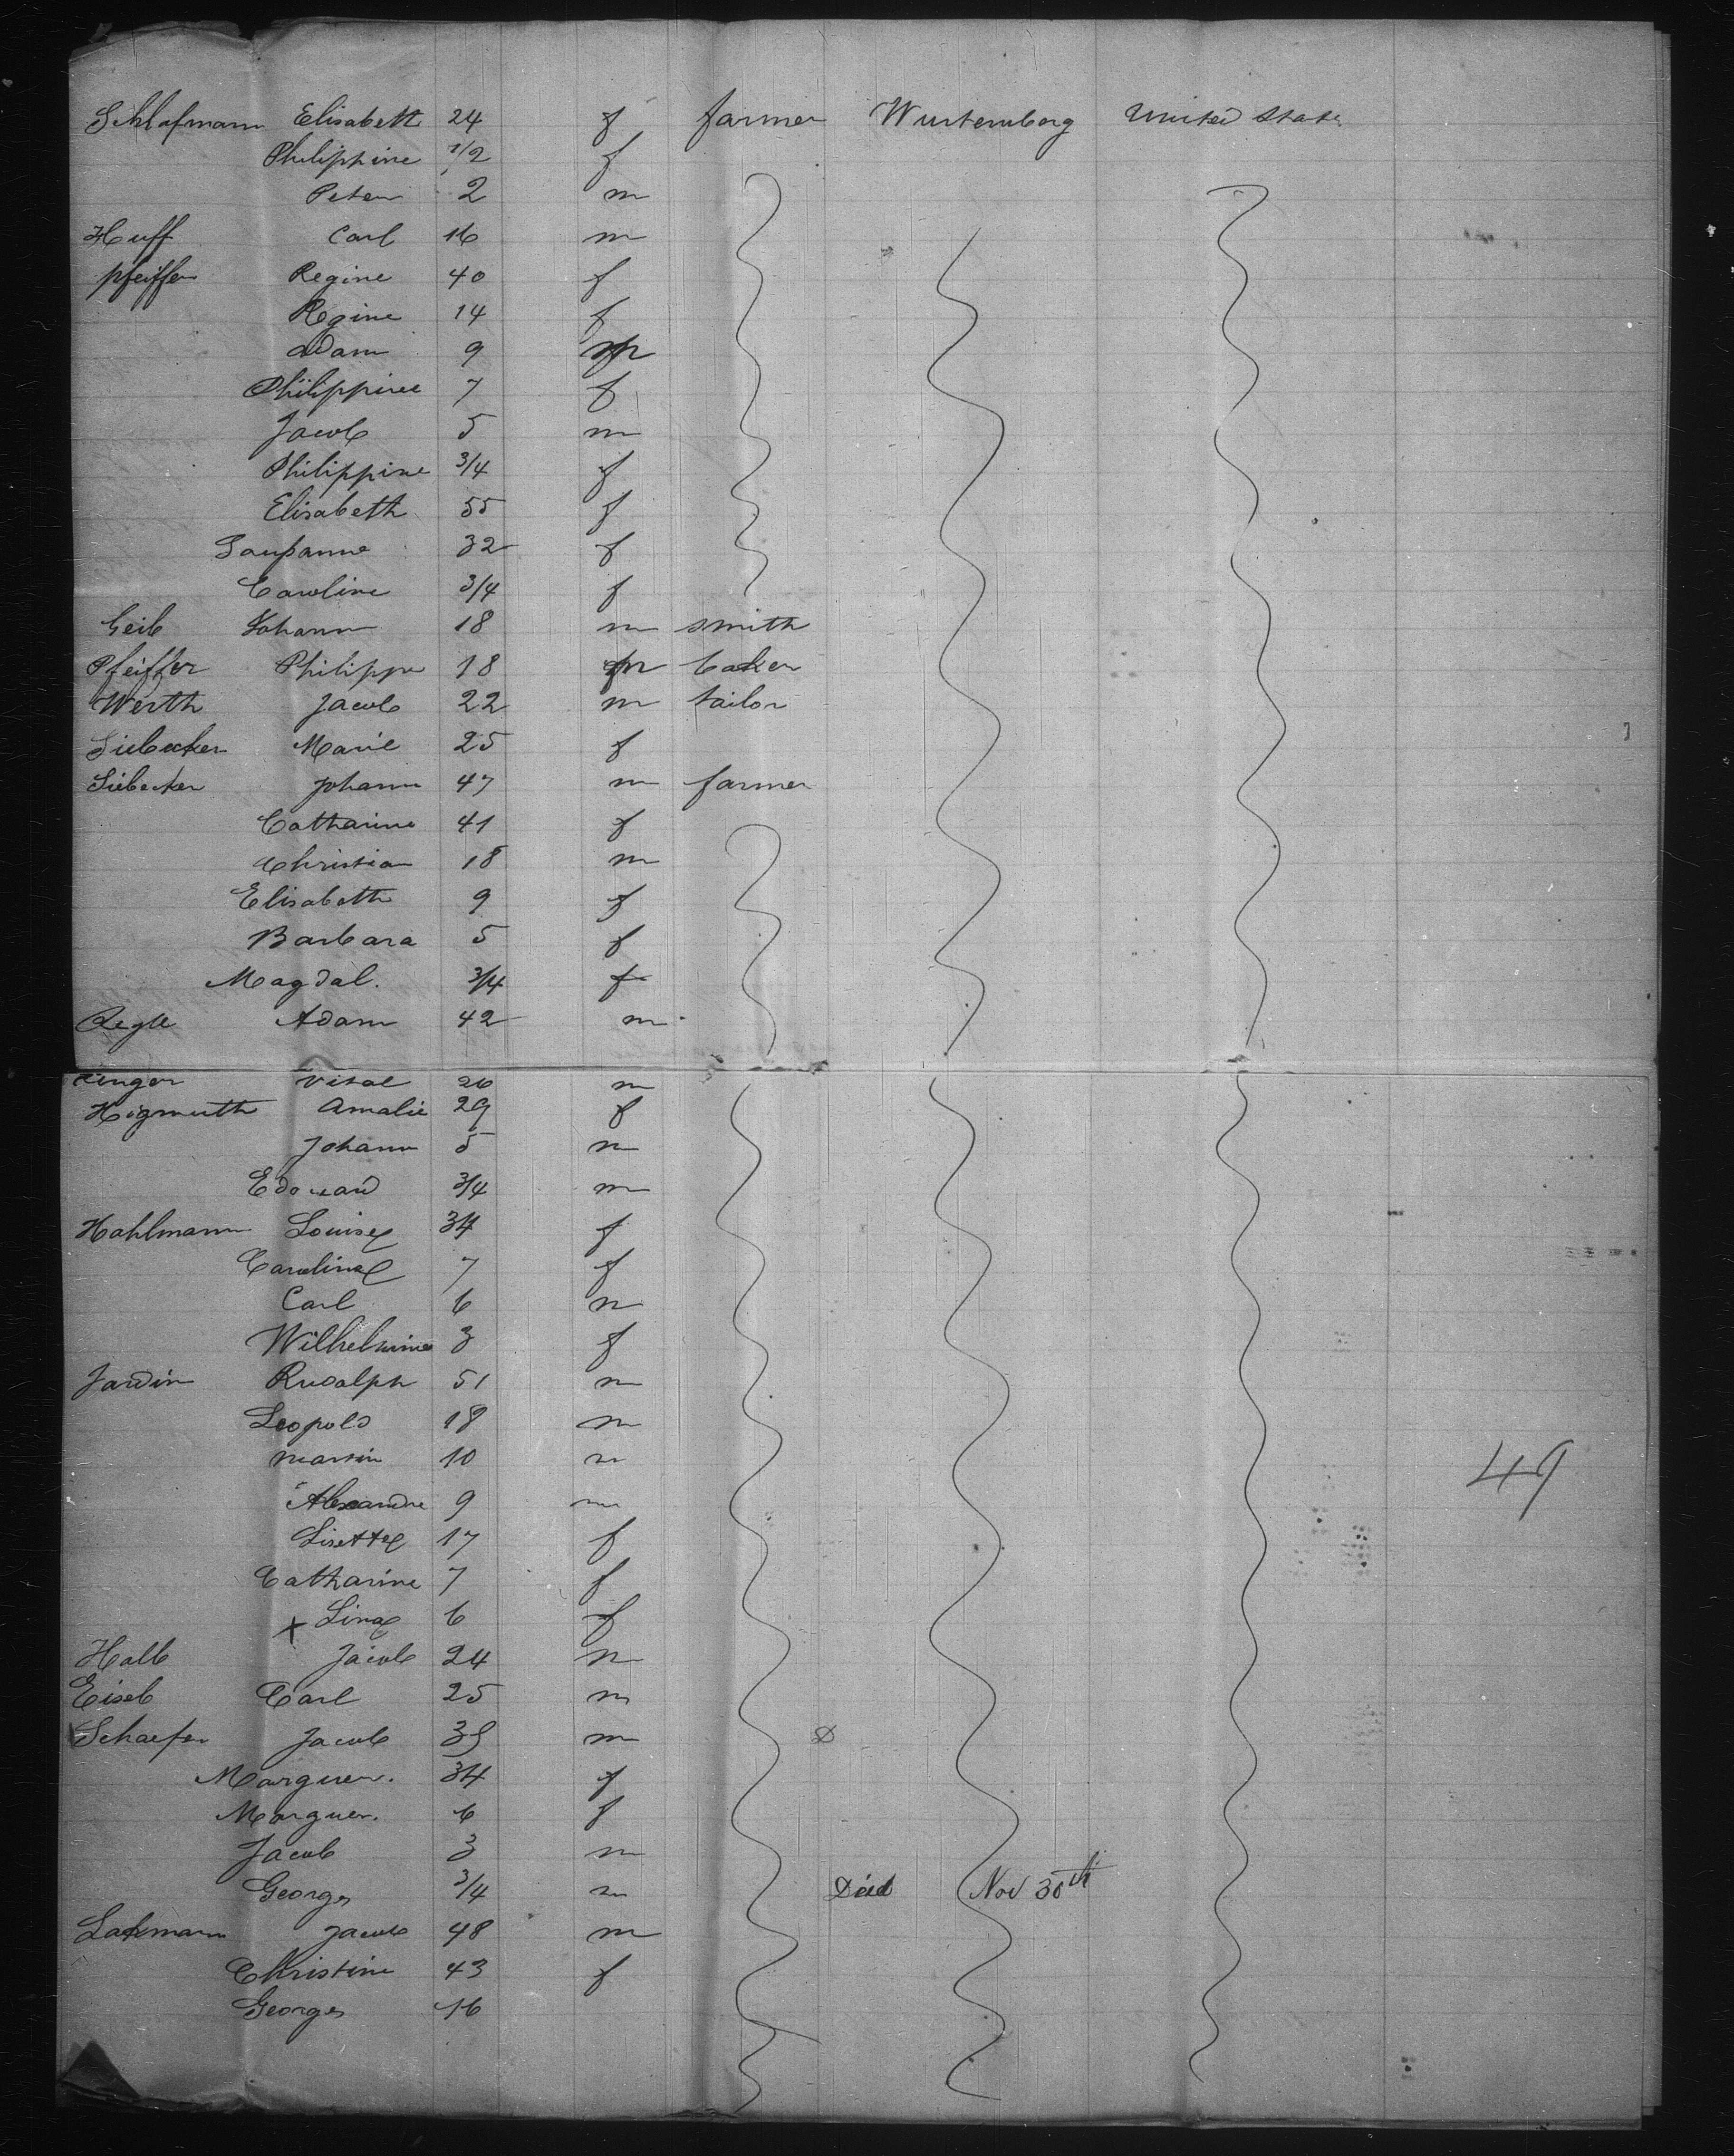 Schlafmann Elisabeth 24 f farmer Wurtemberg United State
Philiphine 1/2 f
Peter 2 m
Huff Carl 16 m
Pfeiffer Regine 40 f
Regine 14 f
Adam 9 m
Philippine 7 f
Jacob 5 m
Philippine 3/4 f
Elisabeth 55 f
32 f
Caroline 3/4 f
Geib Johann 18 m smith
Pfeiffer Philippe 18 m baker
Werth Jacob 22 m tailor
Siebecker Marie 25 f
Siebecker Johann 47 m farmer
Catharine 41 f
Christian 18 m
Elisabeth 9 f
Barbara 5 f
Magdal. 3/4 f
Regle Adam 42 m
Vital 26 m
Higmuth Amalie 29 f
Johann 5 m
Edouard 3/4 m
Hahlmann Louise 34 f
Caroline 7 f
Carl 6 m
Wilhelmine 3 f
Jardin Rudolph 51 m
Leopold 18 m
Martin 10 m
Alexandre 9 m
Lisette 17 f
Catharine 7 f
x Lina 6 f
Halb Jacob 24 m
Eiseb Carl 25 m
Schaefer Jacob 35 m D
Marguer. 34 f
Marguer. 6 f
Jacob 3 m
Georges 3/4 m Died Nov 30th
Lakmann Jacob 48 m
Christine 43 f
Georges 16
49